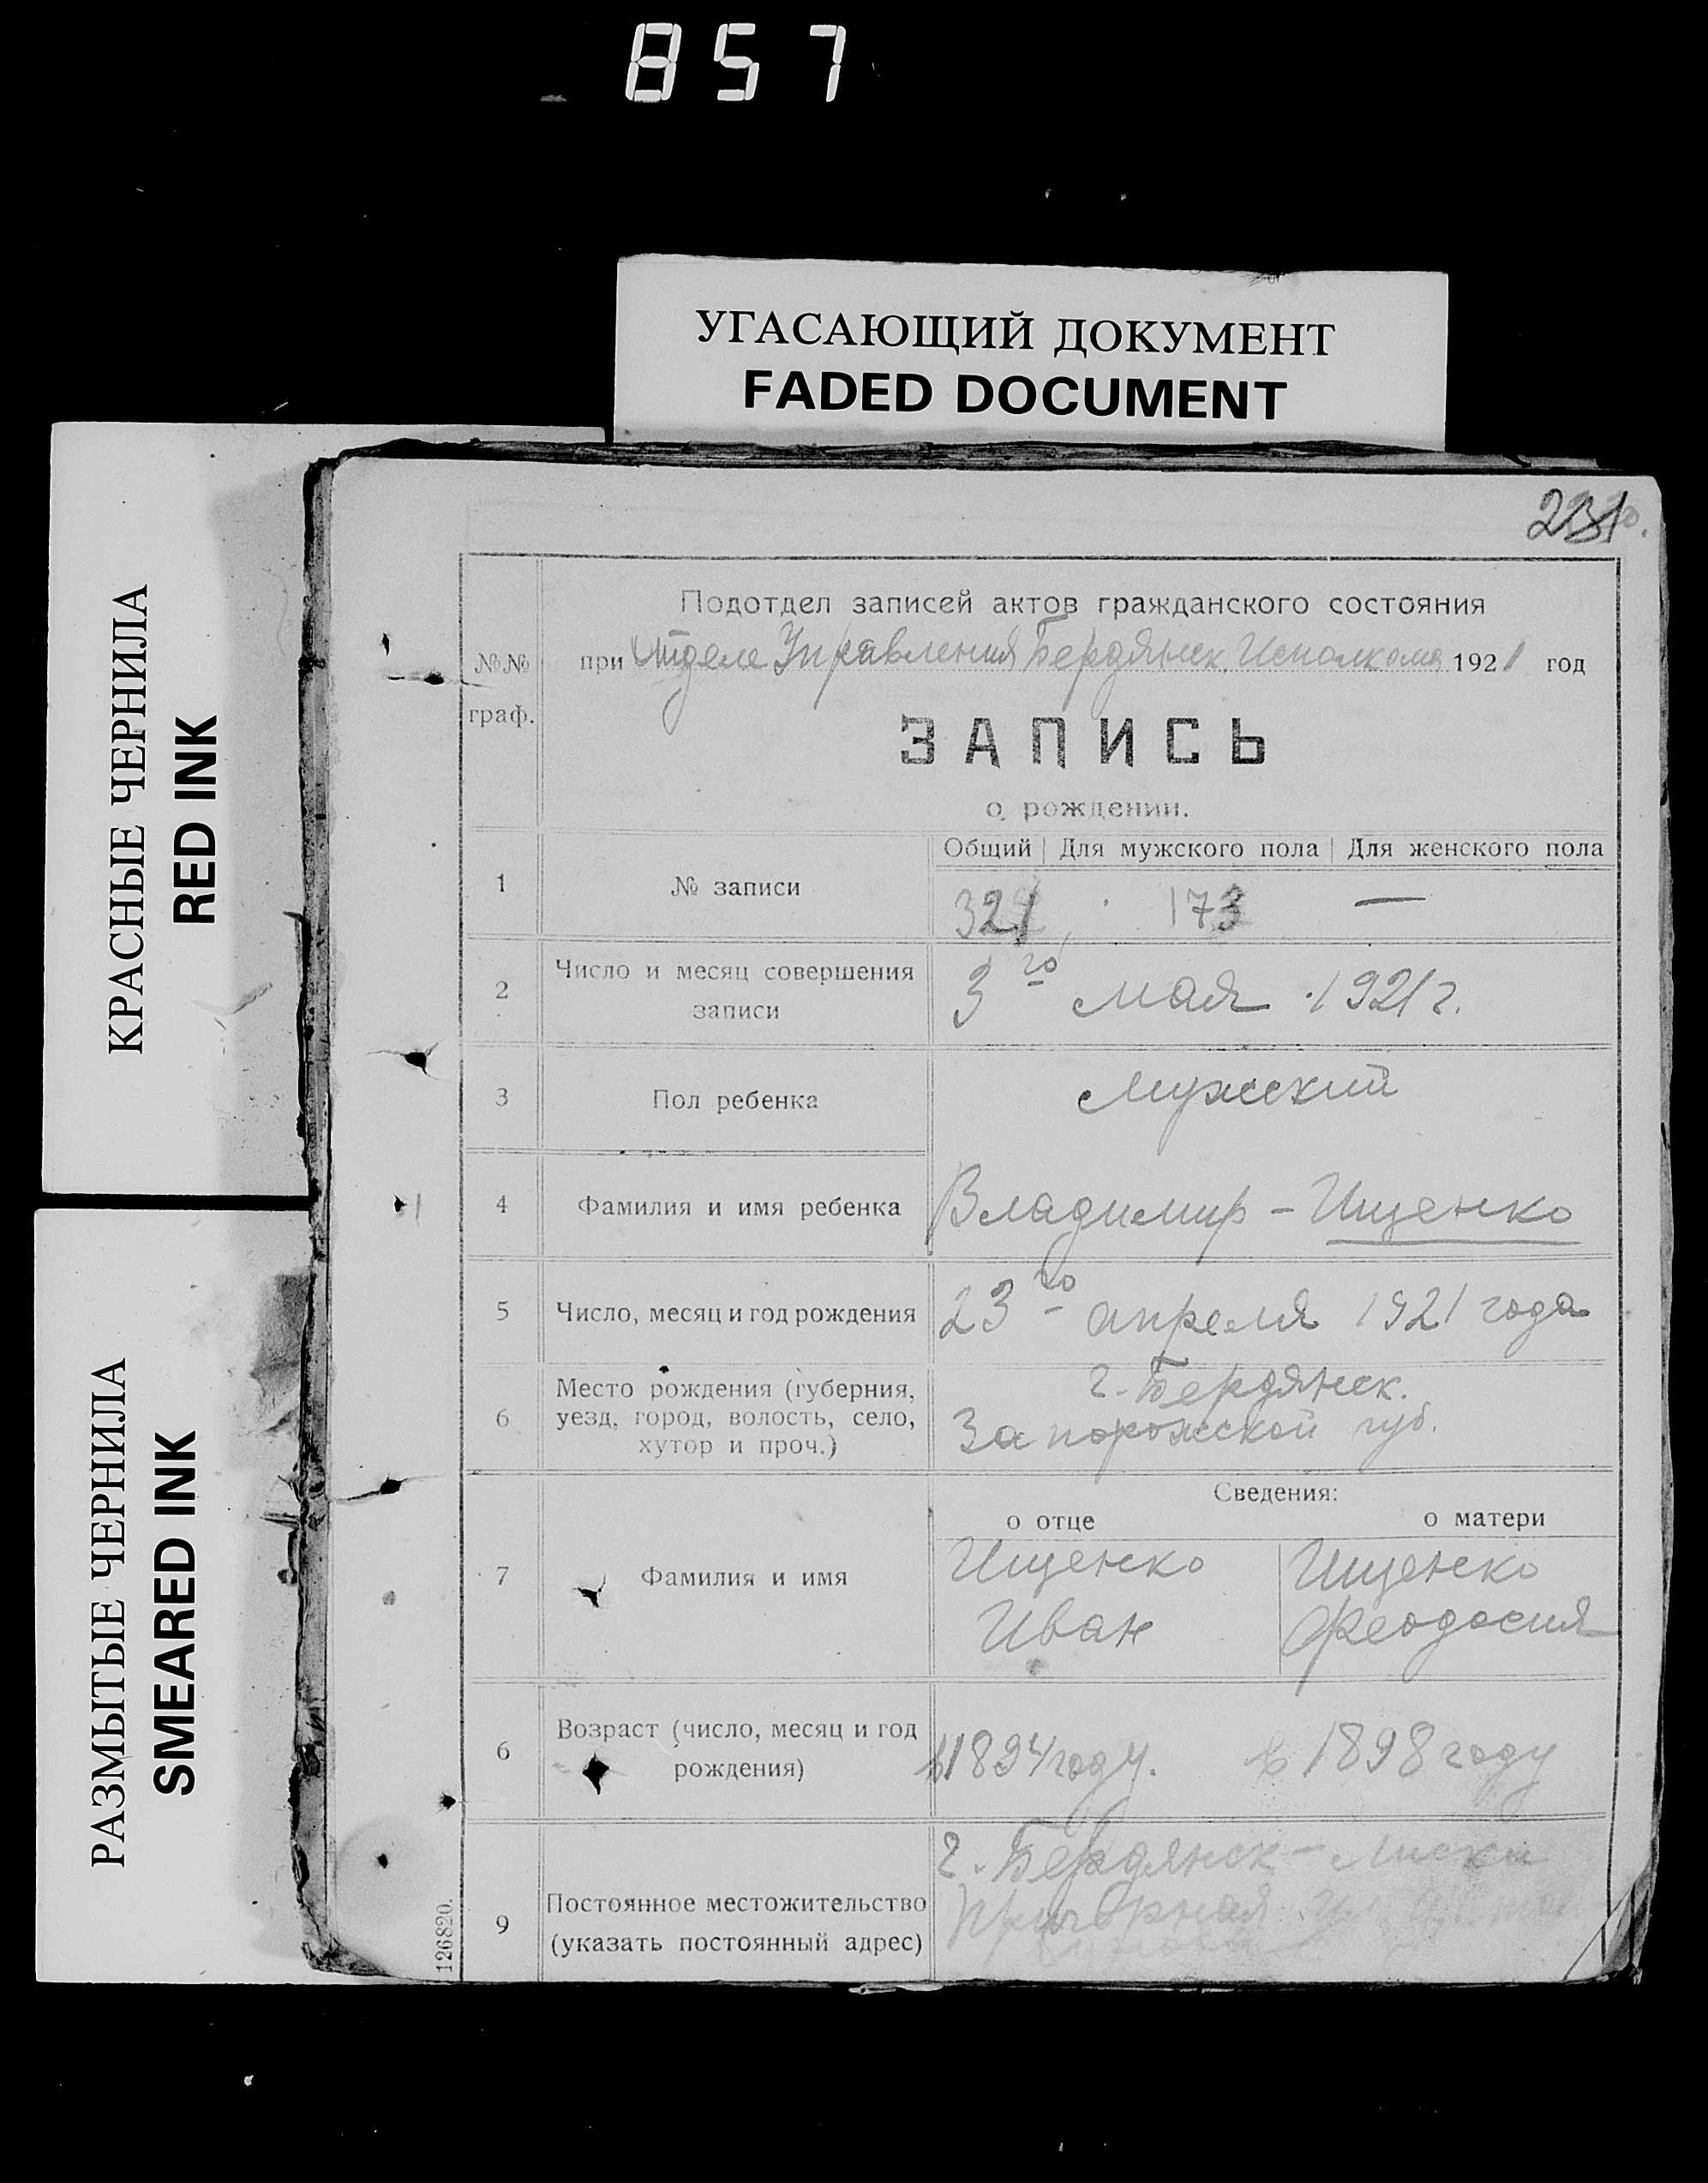 857
УГАСАЮЩИЙ ДОКУМЕНТ
FADED DOCUMENT
КРАСНЫЕ ЧЕРНИЛА
RED INK
РАЗМЫТЫЕ ЧЕРНИЛА
SMEARED INK
231
Подотдел записей актов гражданского состояния
№№ граф.
при Отделе Управления Бердянск. Исполкома 1921 год
ЗАПИСЬ
о рождении.
Общий Для мужского пола Для женского пола
1 № записи 321 173 —
2 Число и месяц совершения
записи
3го мая 1921 г.
3 Пол ребенка Мужский
4 Фамилия и имя ребенка Владимир - Ищенко
5 Число, месяц и год рождения 23го апреля 1921 года
6 Место рождения (губерния,
уезд, город, волость, село,
хутор и проч.)
г. Бердянск.
Запорожской губ.
Сведения:
о отце о матери
7 Фамилия и имя
Ищенко Ищенко
Иван Феодосия
6 Возраст (число, месяц и год
рождения)
в 1894 году. в 1898 году
9 Постоянное местожительство
(указать постоянный адрес)
г. Бердянск - Лиски
126820.